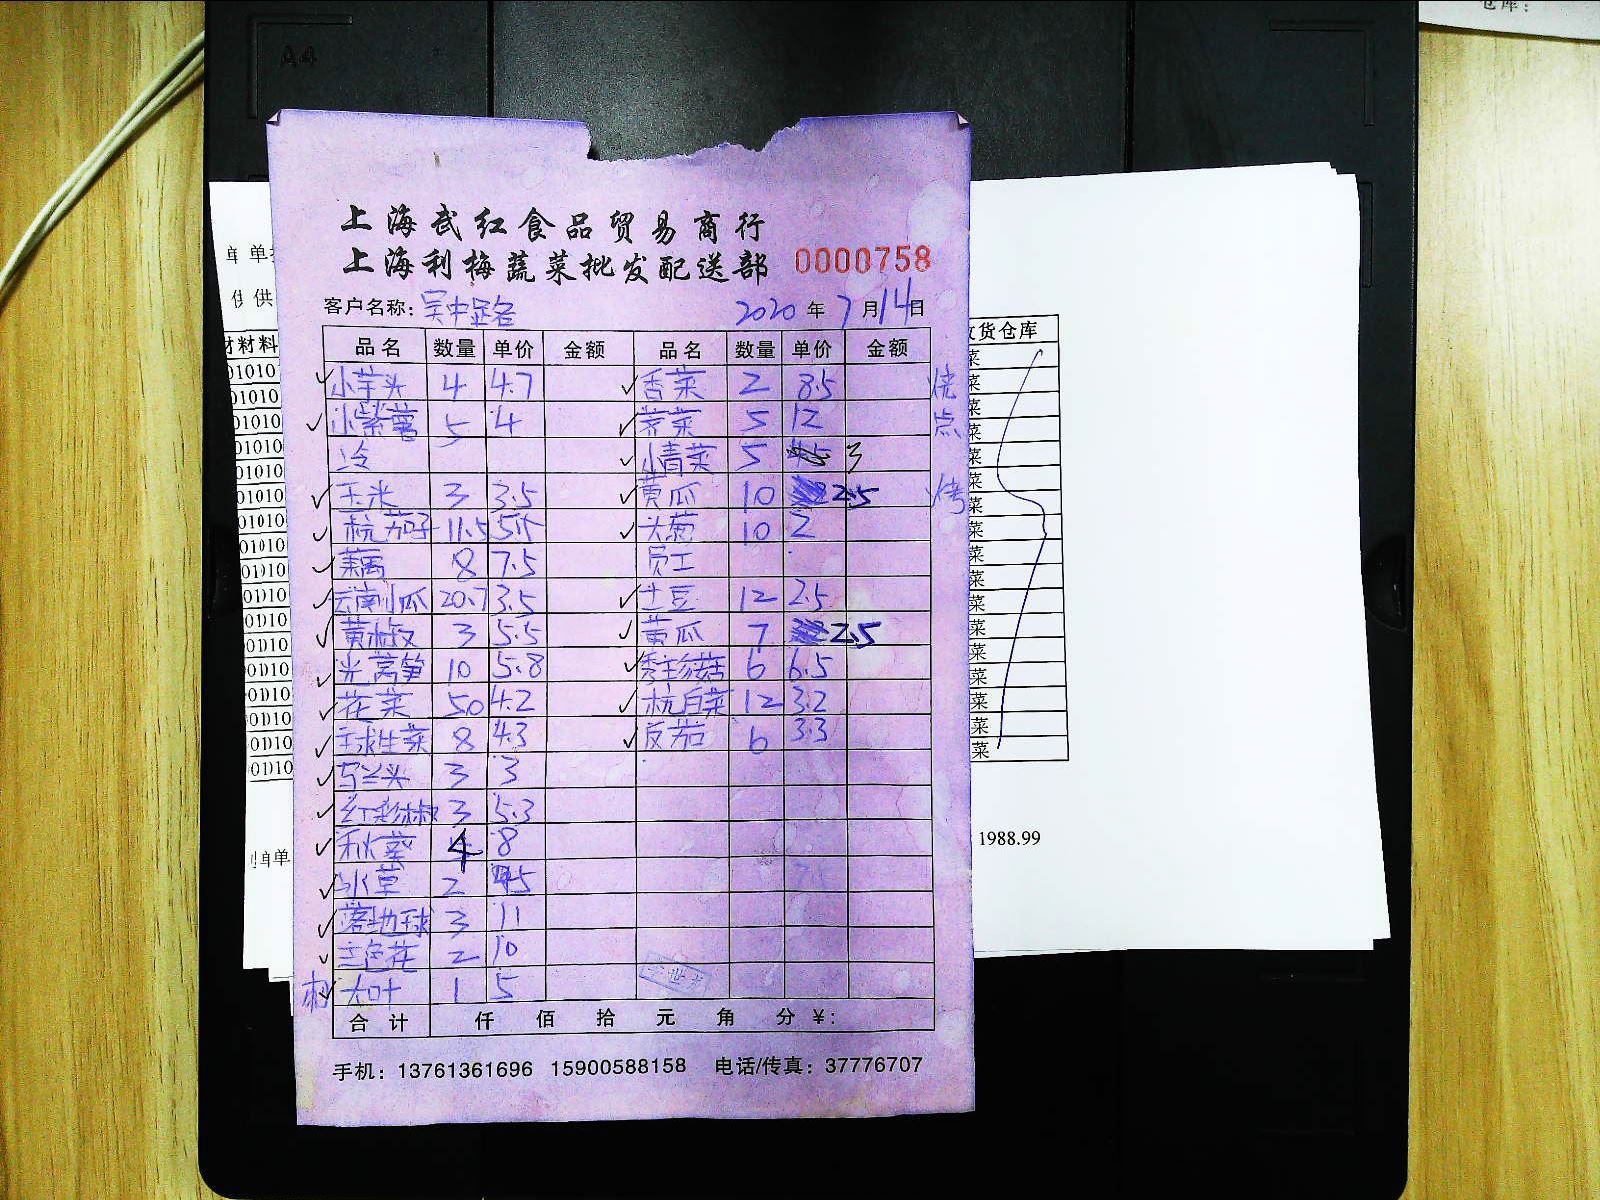 A4
仓库:
上海武红食品贸易商行
上海利梅蔬菜批发配送部 0000758
客户名称: 2020年7月14日
品名 数量 单价 金额 品名 数量 单价 金额
小芋头 4 4.7 香菜 2 8.5 烧
小紫薯 5 4 荠菜 5 12 点
冷 小青菜 5 3
玉米 3 3.5 黄瓜 10 2.5 烤
杭茄子 11.5 5 大葱 10 2
藕 8 7.5 员工
云南小瓜 20.7 3.5 土豆 12 2.5
黄椒 3 5.5 黄瓜 7 2.5
光莴笋 10 5.8 秀珍菇 6 6.5
花菜 50 4.2 杭白菜 12 3.2
球生菜 8 4.3 皮茄 6 3.3
马兰头 3 3
红彩椒 3 5.3
秋葵 4 8
冰草 2
落地球 3 11
三色花 2 10
大叶 1 5
合计 仟 佰 拾 元 角 分 ¥:
手机: 13761361696 15900588158 电话/传真: 37776707
单
供
材料
货仓库
010
010
010
010
010
菜
菜
菜
菜
菜
1988.99